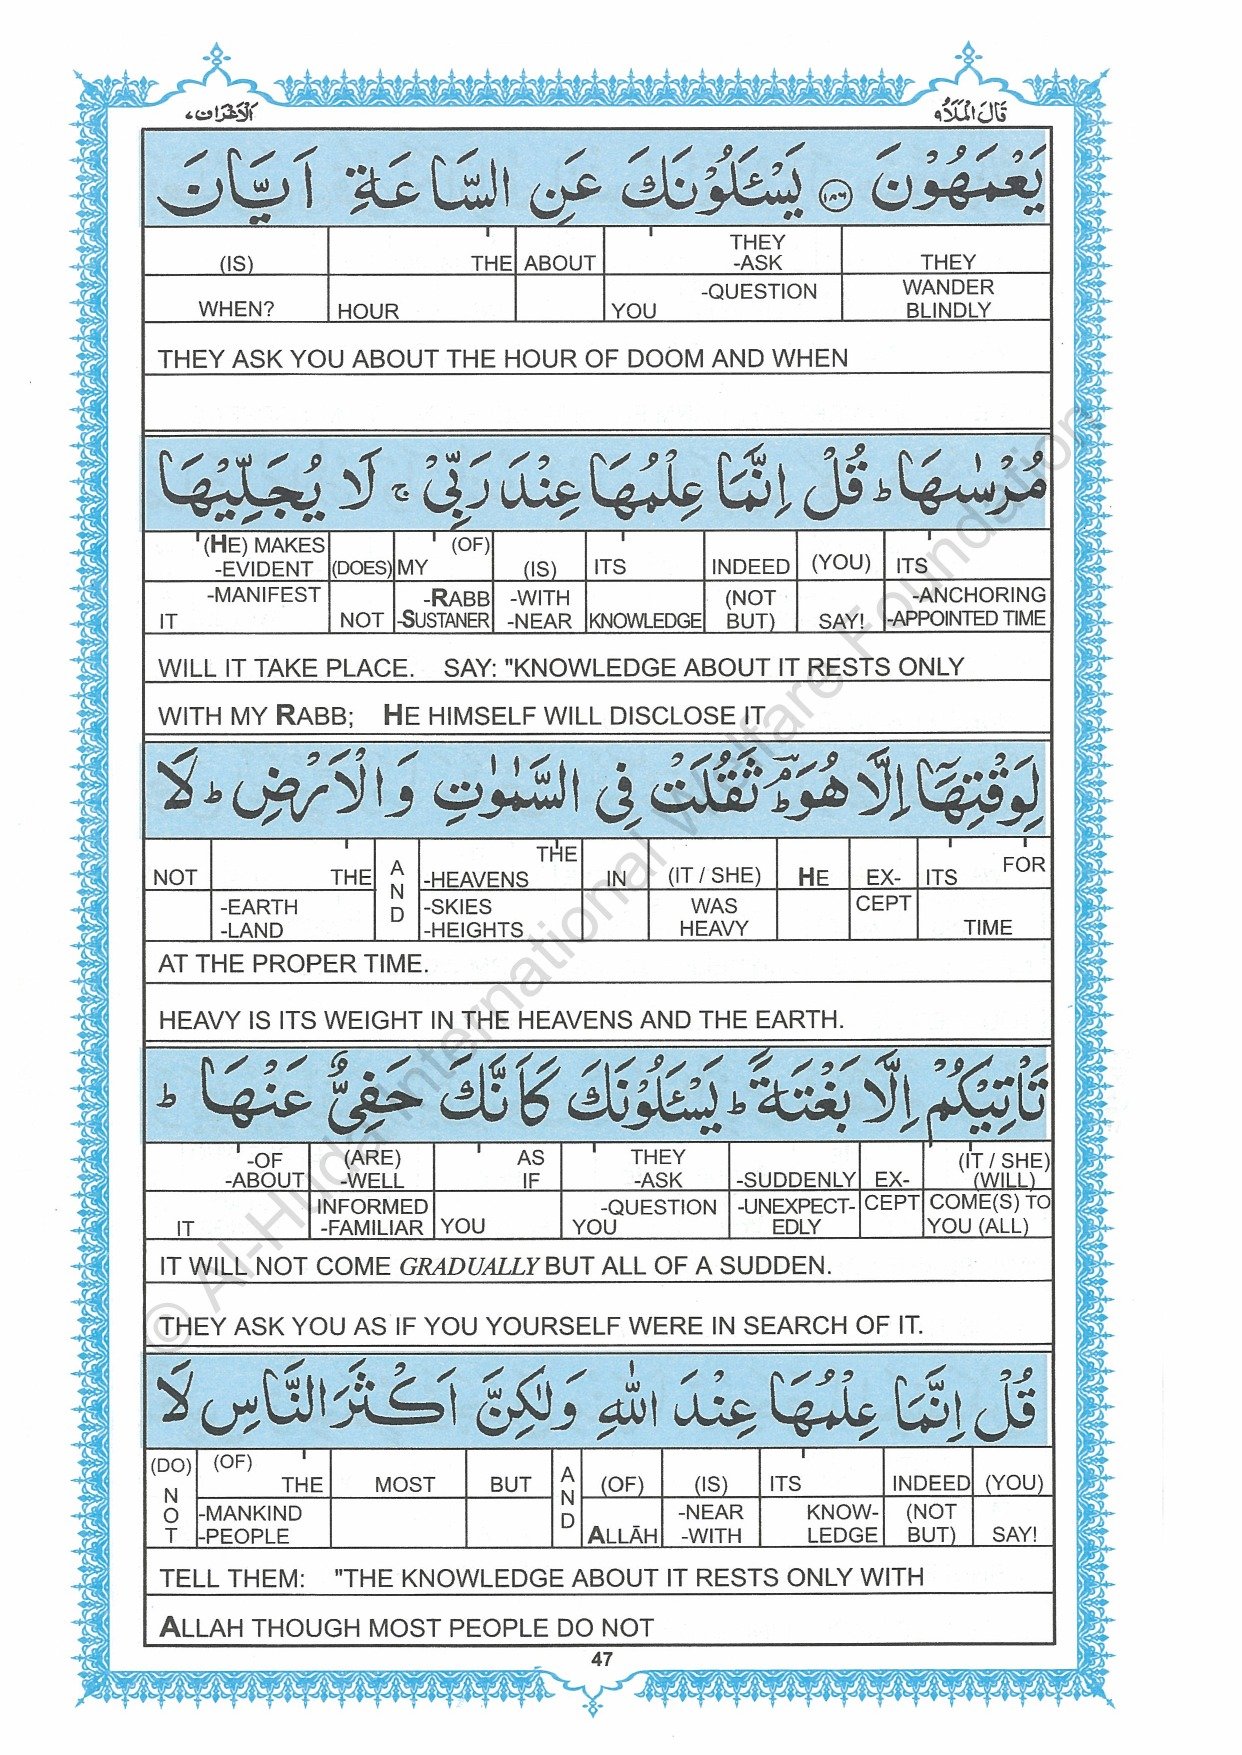 قَالَ الْمَلَاُ ٩
الْاَعْرَاف ٧
يَعْمَهُوْنَ ١٨٦ يَسْـَٔلُوْنَكَ عَنِ السَّاعَةِ اَيَّانَ
THEY WANDER BLINDLY
THEY -ASK -QUESTION YOU
ABOUT
THE HOUR
(IS) WHEN?
THEY ASK YOU ABOUT THE HOUR OF DOOM AND WHEN
مُرْسٰىهَا ؕ قُلْ اِنَّمَا عِلْمُهَا عِنْدَ رَبِّىْ ۚ لَا يُجَلِّيْهَا
ITS -ANCHORING -APPOINTED TIME
(YOU) SAY!
INDEED (NOT BUT)
ITS KNOWLEDGE
(IS) -WITH -NEAR
(OF) MY -RABB -SUSTANER
(DOES) NOT
(HE) MAKES -EVIDENT -MANIFEST IT
WILL IT TAKE PLACE. SAY: "KNOWLEDGE ABOUT IT RESTS ONLY
WITH MY RABB; HE HIMSELF WILL DISCLOSE IT
لِوَقْتِهَاۤ اِلَّا هُوَ ؔؕ ثَقُلَتْ فِى السَّمٰوٰتِ وَالْاَرْضِ ؕ لَا
FOR ITS TIME
EXCEPT
HE
(IT / SHE) WAS HEAVY
IN
THE -HEAVENS -SKIES -HEIGHTS
AND
THE -EARTH -LAND
NOT
AT THE PROPER TIME.
HEAVY IS ITS WEIGHT IN THE HEAVENS AND THE EARTH.
تَاْتِيْكُمْ اِلَّا بَغْتَةً ؕ يَسْـَٔلُوْنَكَ كَاَنَّكَ حَفِىٌّ عَنْهَا ؕ
(IT / SHE) (WILL) COME(S) TO YOU (ALL)
EX- CEPT
-SUDDENLY -UNEXPECT- EDLY
THEY -ASK -QUESTION YOU
AS IF YOU
(ARE) -WELL INFORMED -FAMILIAR
-OF -ABOUT IT
IT WILL NOT COME GRADUALLY BUT ALL OF A SUDDEN.
THEY ASK YOU AS IF YOU YOURSELF WERE IN SEARCH OF IT.
قُلْ اِنَّمَا عِلْمُهَا عِنْدَ اللّٰهِ وَلٰكِنَّ اَكْثَرَ النَّاسِ لَا
(YOU) SAY!
INDEED (NOT BUT)
ITS KNOW- LEDGE
(IS) -NEAR -WITH
(OF) ALLĀH
AND
BUT
MOST
(OF) THE -MANKIND -PEOPLE
(DO) NOT
TELL THEM: "THE KNOWLEDGE ABOUT IT RESTS ONLY WITH
ALLAH THOUGH MOST PEOPLE DO NOT
47
© Al-Huda International Welfare Foundation